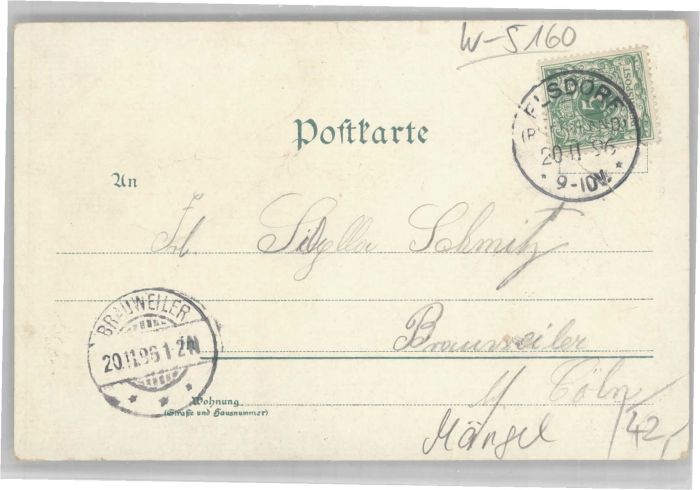 W-5160
ELSDORF
(RHEINLAND)
20 11 96
* 9-10V. *
Postkarte
An
Frl Sibylla Schmitz
Brauweiler
BRAUWEILER
20.11.96 1-2N
b/ Cöln
Wohnung
(Straße und Hausnummer)
Mängel
42,-